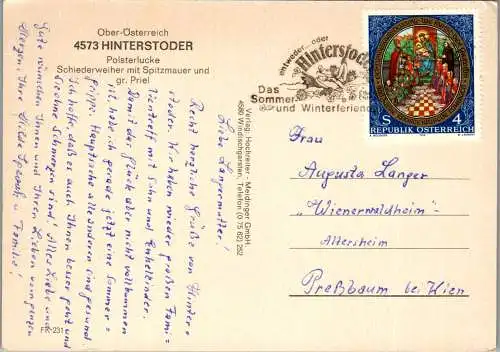 Ober-Österreich
4573 HINTERSTODER
Polsterlucke
Schiederweiher mit Spitzmauer und
gr. Priel
Verlag: Hochreiter - Meidinger GmbH
4580 Windischgarsten, Telefon (0 75 62) 252
FR-231
entweder.. oder
Hinterstoder
Das
Sommer-
und Winterferien
REPUBLIK ÖSTERREICH
S 4
Liebe Langermutter!
Recht herzliche Grüße von Hinter-
stoder. Wir haben wieder großen Fami-
lientreff mit Sohn und Enkelkinder.
Damit das Glück aber nicht vollkommen
ist, habe ich gerade jetzt eine Sommer-
grippe. Hauptsache alle anderen sind gesund
Ich hoffe daß es auch Ihnen besser geht und
Sie ohne Schmerzen sind! Alles Liebe und
Gute wünschen Ihnen und Ihren Lieben von ganzen
Herzen! Ihre Hilde und Familie!
Frau
Augusta Langer
"Wienerwaldheim"-
Altersheim
Preßbaum bei Wien